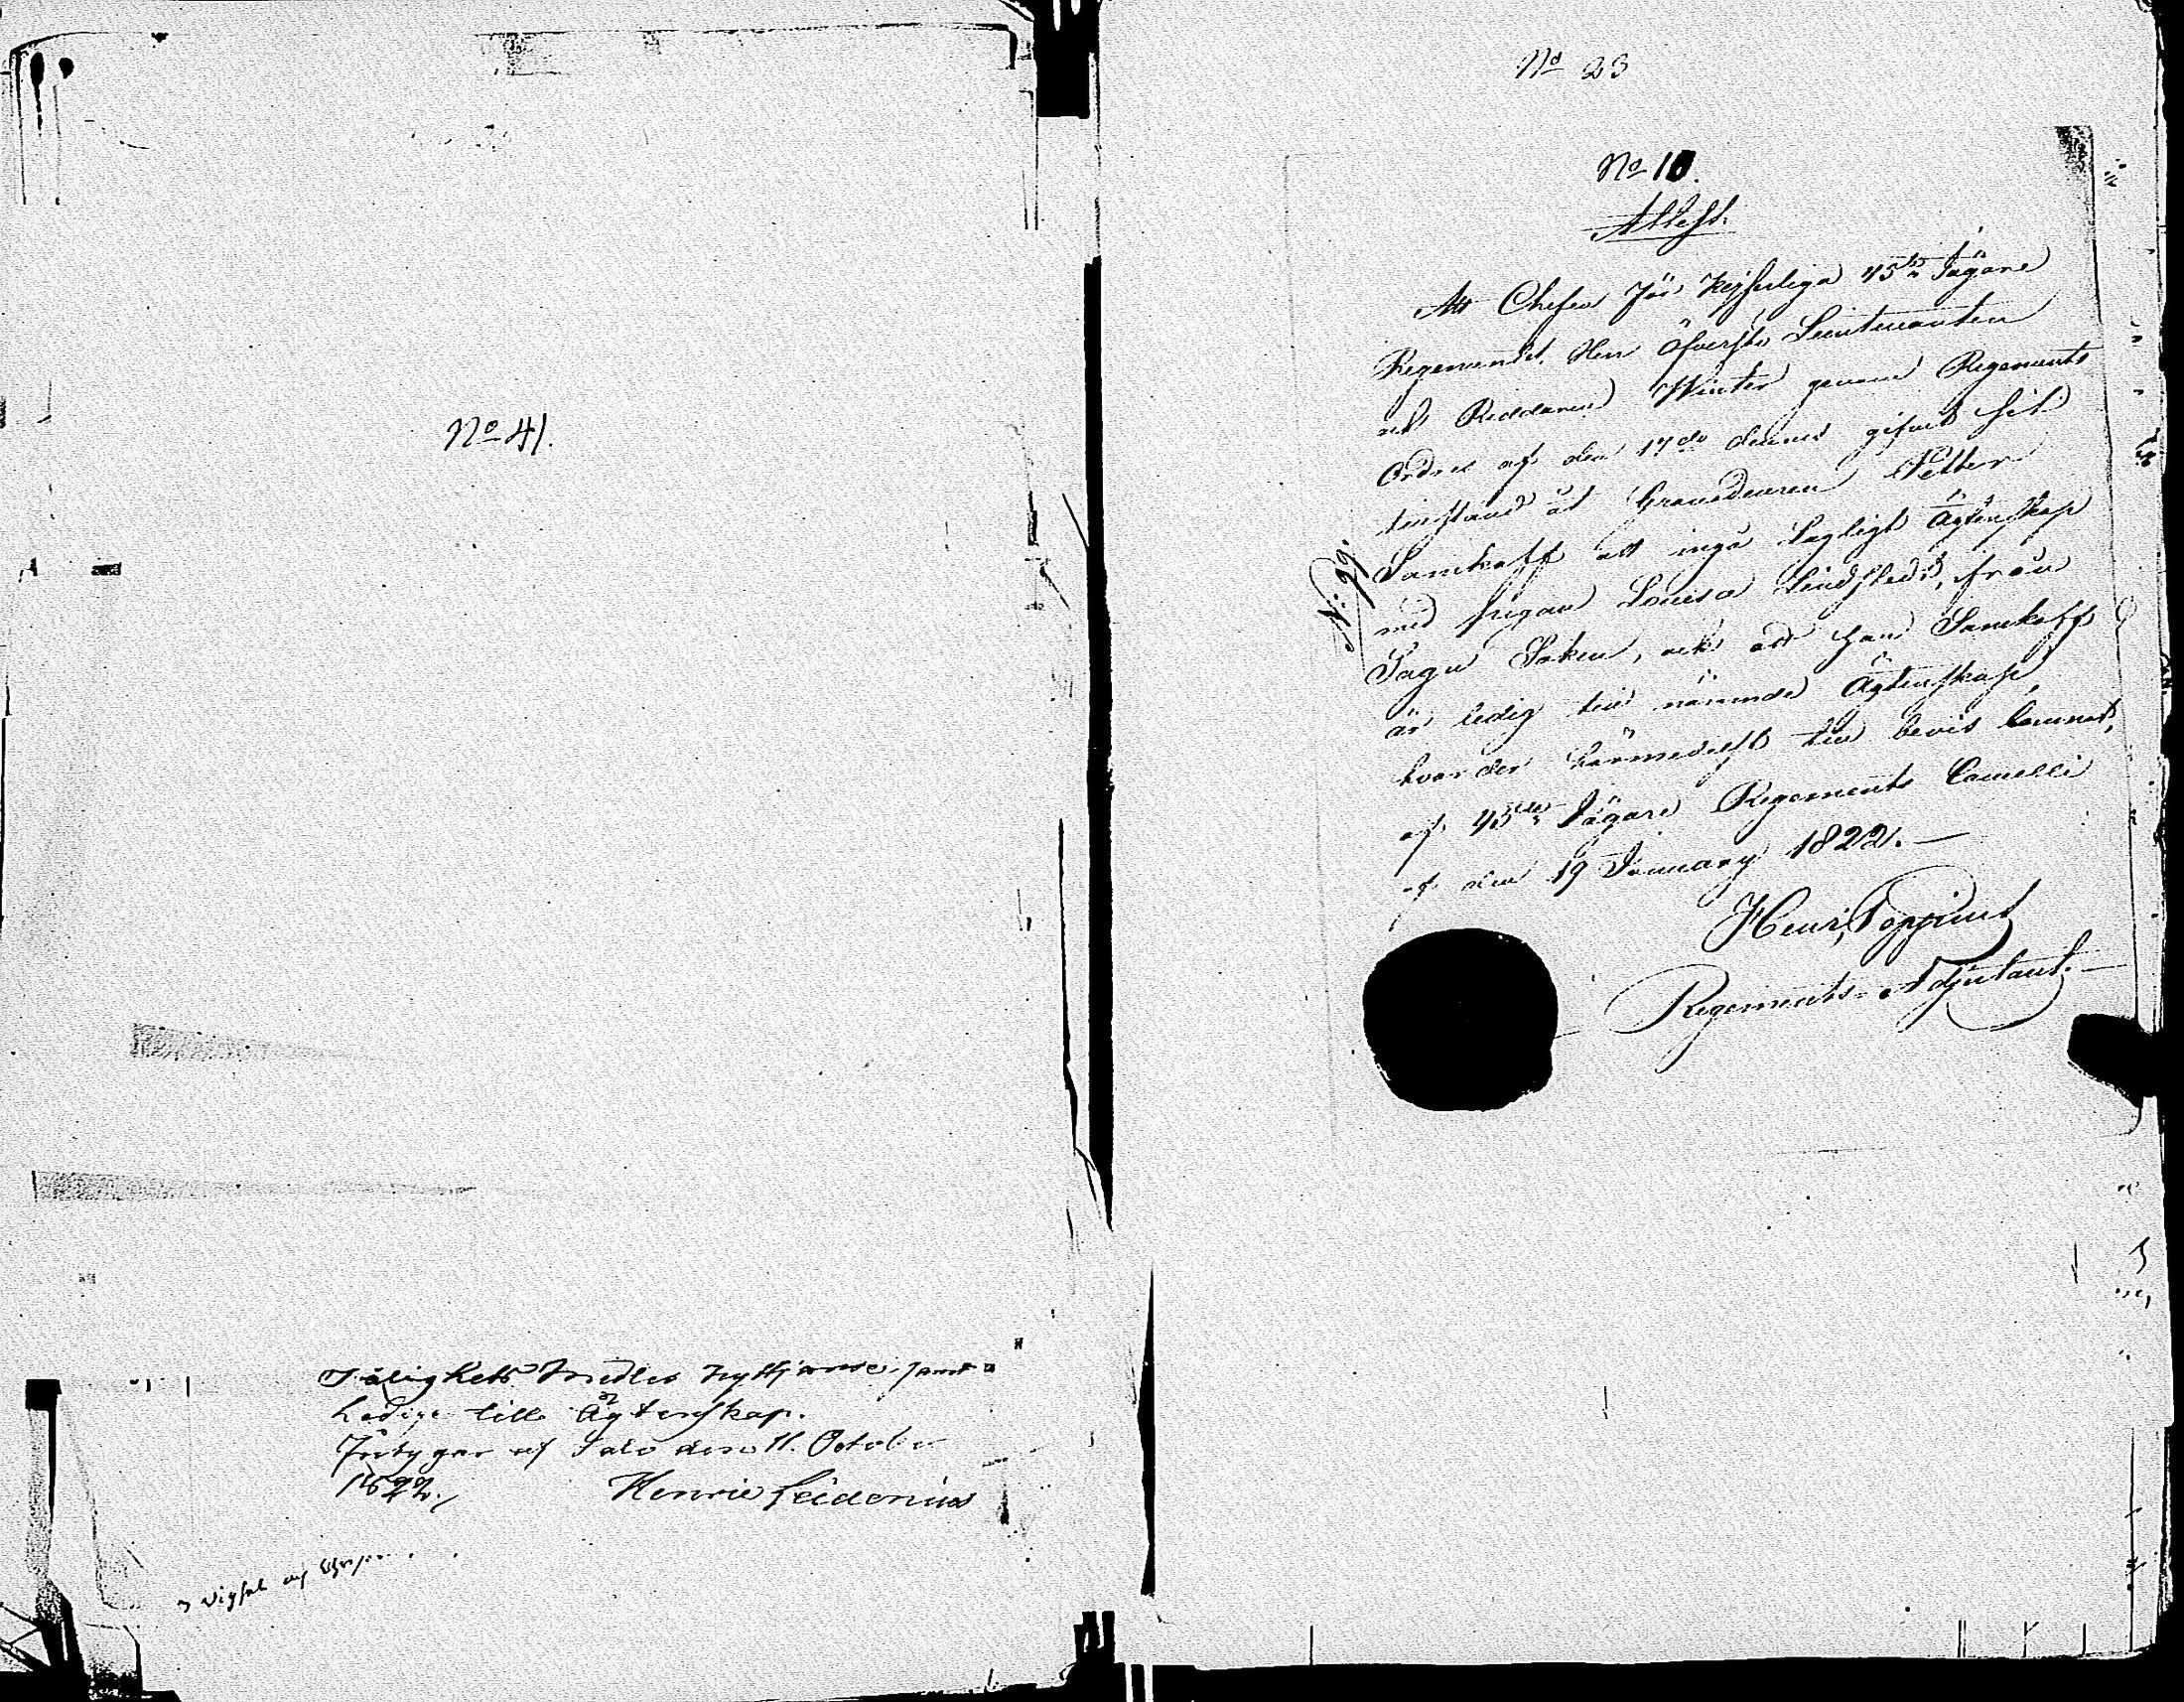 No 41.
Salighets Medles nyttjande, samt
Ledige till Ägtenskap.
Intygar af Salo den 11. October
1822. Henric Leidenius
Vigde af
No 23
No 10.
Attest.
Att Chefen för Kejserliga 45te Jägare
Regementet Herr Öfverste Lieutenanten
och Riddaren Winter genom Regements
Ordres af den 17de dennes gifvit sit
tilstånd åt Grenadeuren Petter
Samkoff att ingå Lagligt Ägtenskap
med pigan Lovisa Lindstedt, från
Sagu Soken, och att han Samkoff
är ledig till nämnde Ägtenskap
hvarder härmedelst till bevis lemnat,
af 45te Jägare Regements Cancelli
af den 19 January 1822.—
Henr. Poppius
Regements-Adjutant.—
N: 99.